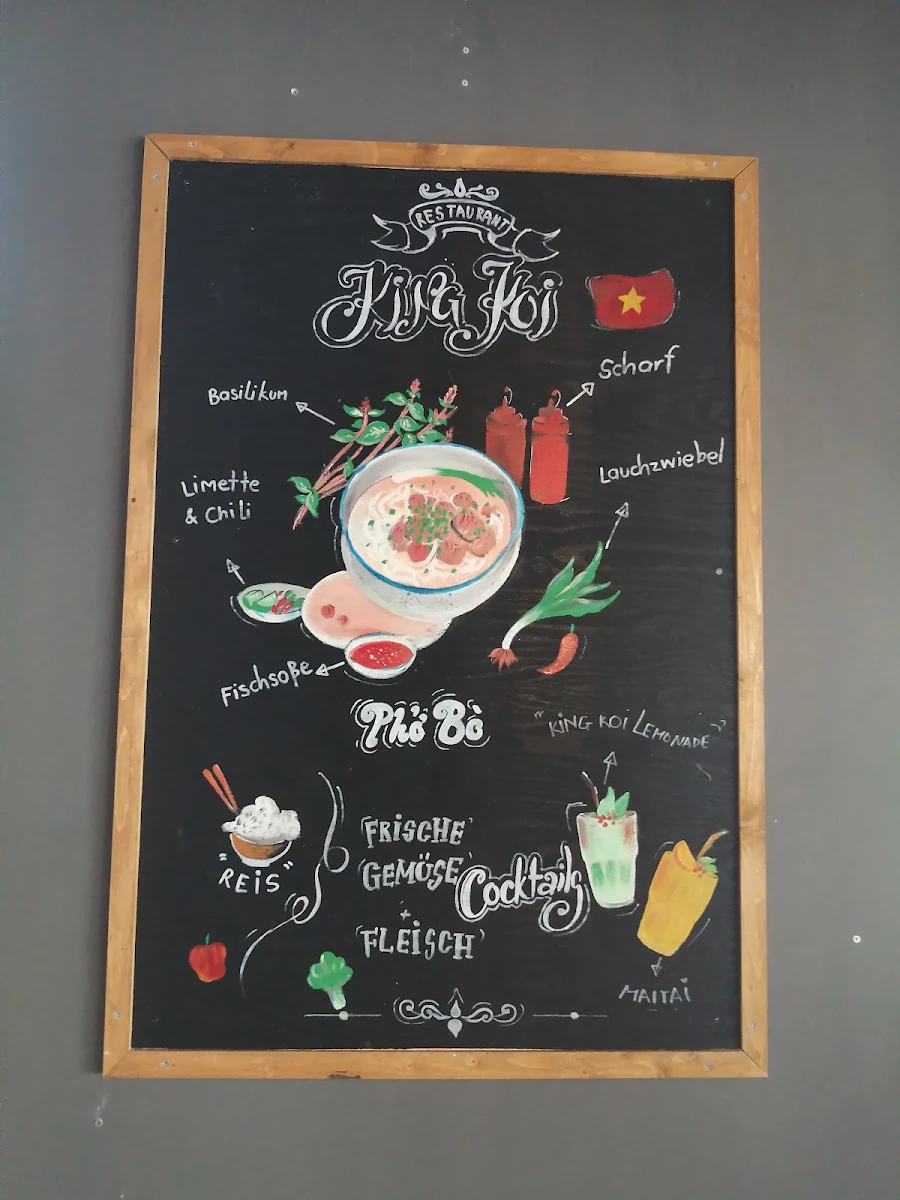 RESTAURANT
King Koi
Scharf
Basilikum
Lauchzwiebel
Limette
& Chili
Fischsoße
Phở Bò
"KING KOI LEMONADE"
FRISCHE
GEMÜSE
+
FLEISCH
"REIS"
Cocktails
MAITAI